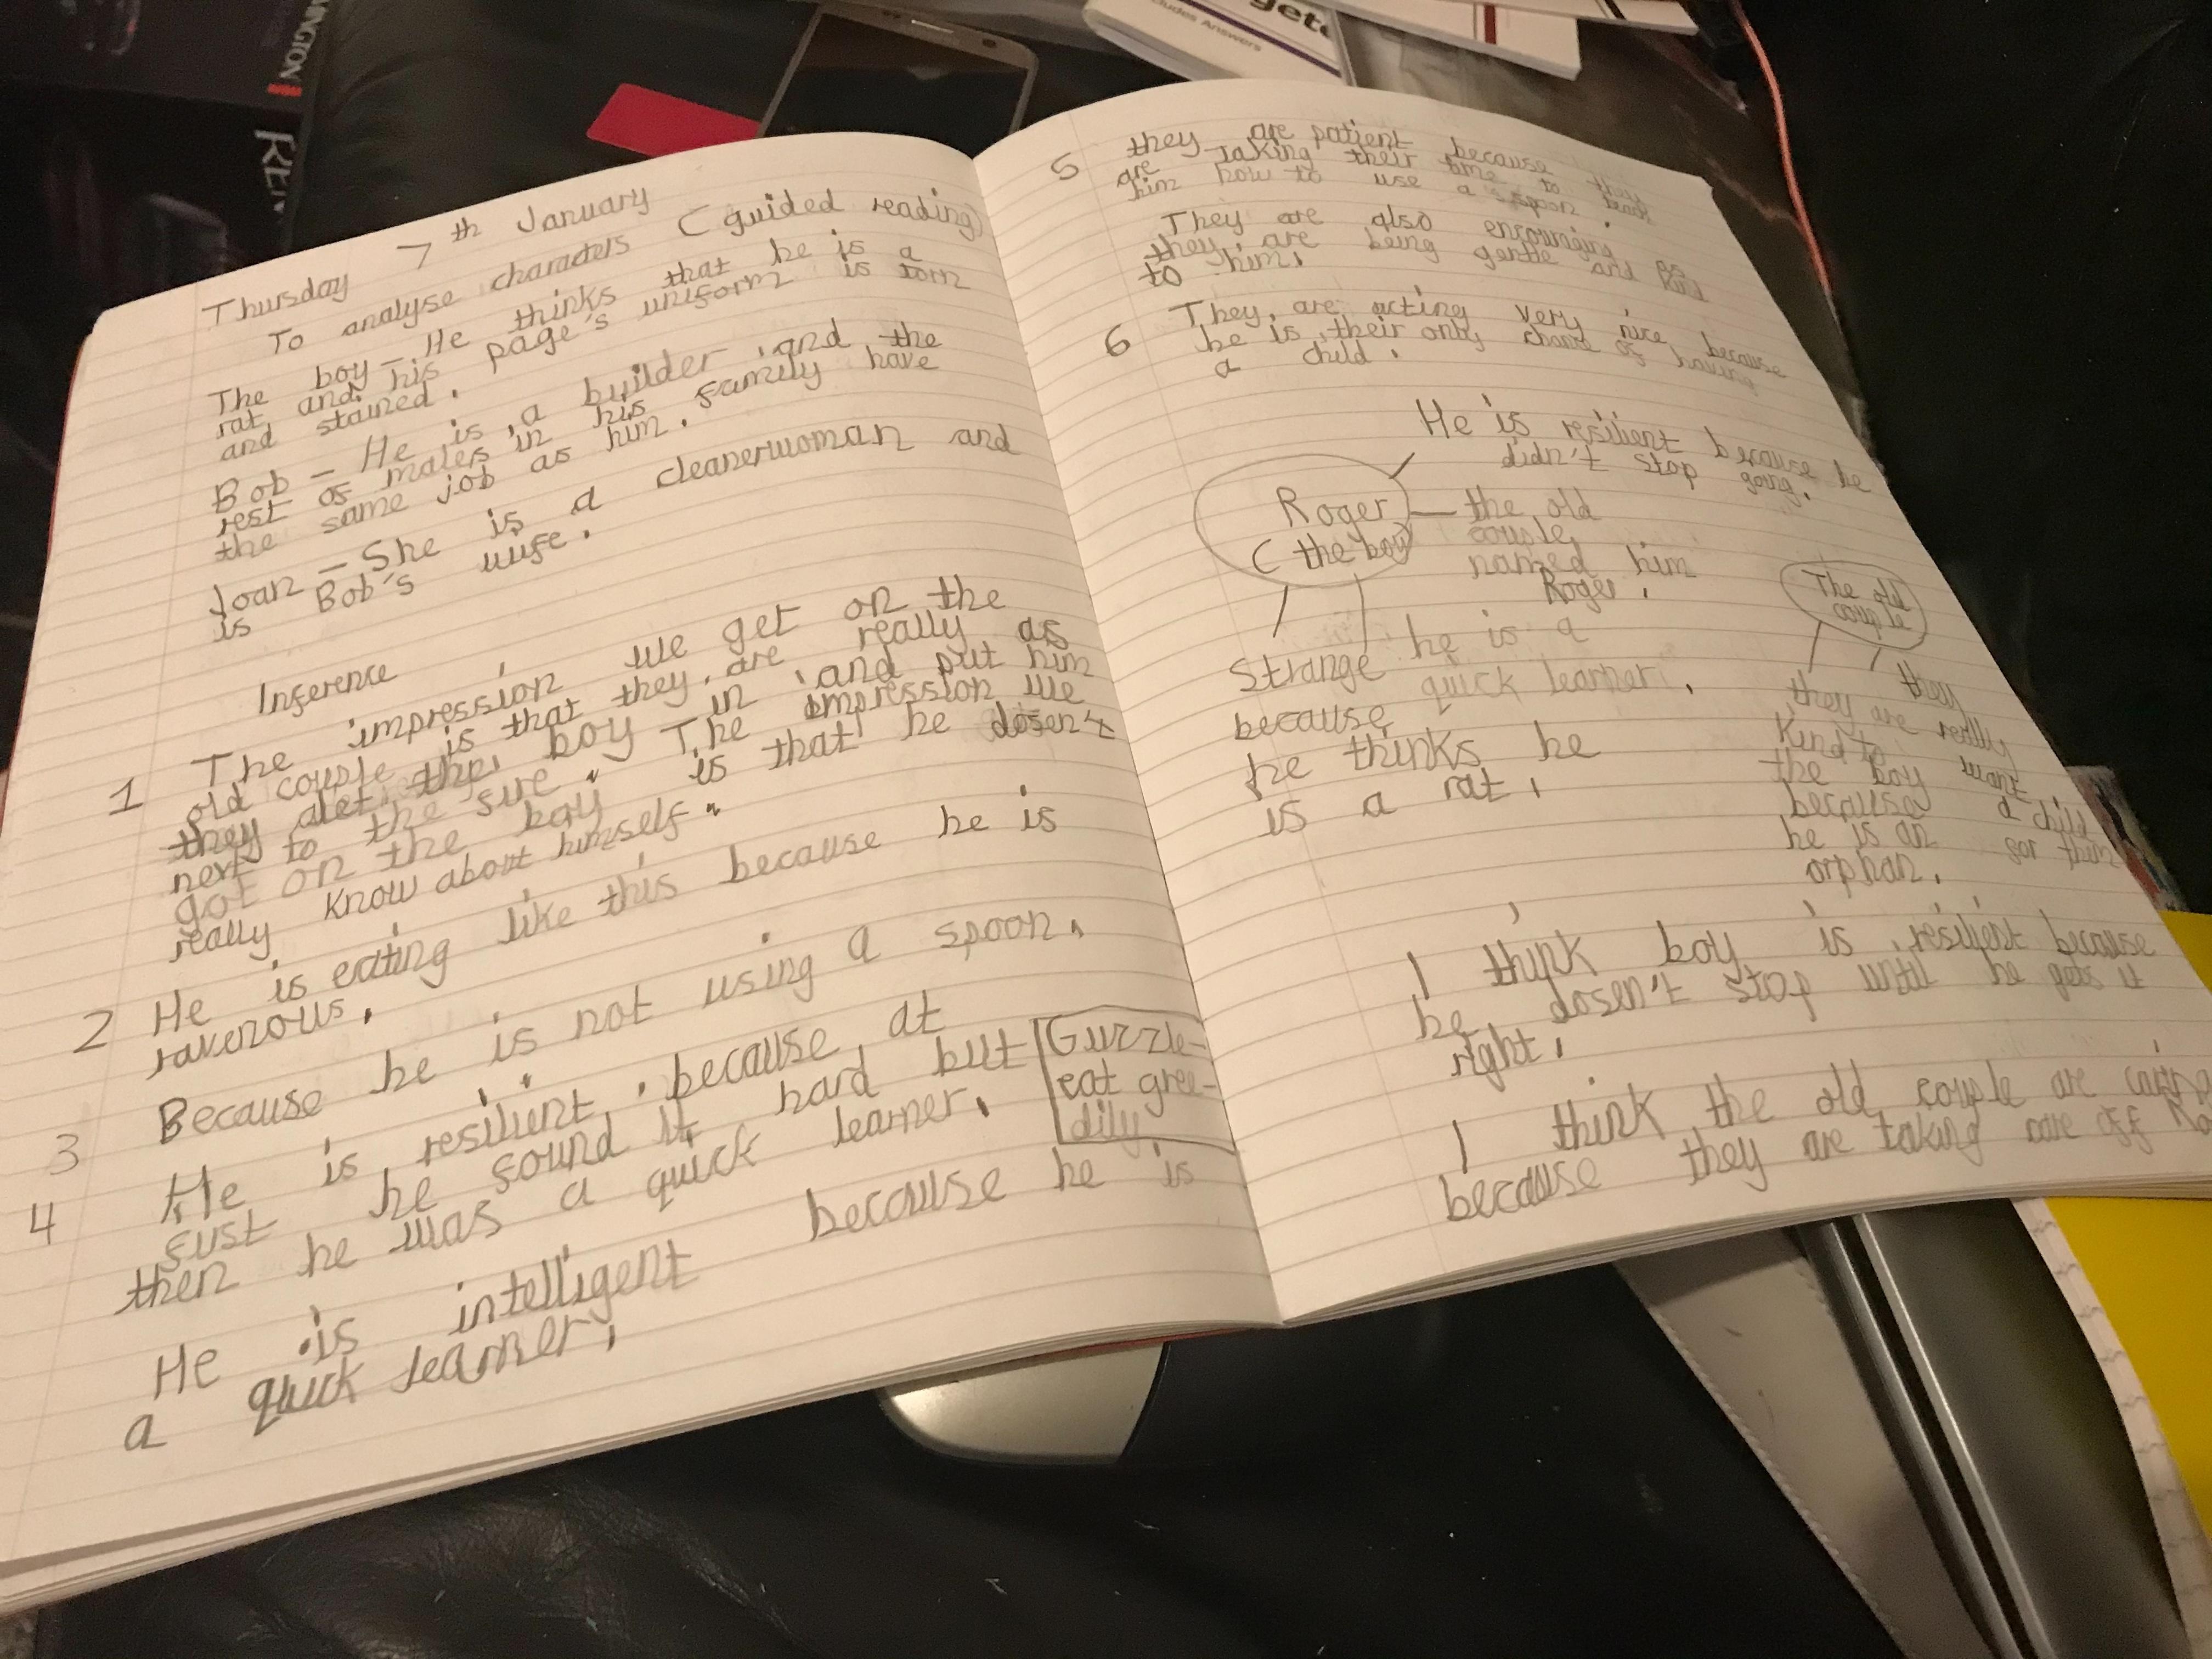 Thursday 7th January
To analyse characters (guided reading)
The boy - He thinks that he is a
rat, and his page's uniform is torn
and stained.
Bob - He is a builder and the
rest of males in his family have
the same job as him.
Joan - She is a cleanerwoman and
is Bob's wife.
Inference
1 The impression we get on the
old couple is that they are really as
they let the boy in and put him
next to the fire. The impression we
got on the boy is that he dosen't
really know about himself.
2 He is eating like this because he is
ravenous.
3 Because he is not using a spoon.
4 He is resilient, because at
fust he found it hard but
then he was a quick learner.
Guzzle-
eat gree-
dily
He is intelligent because he is
a quick learner.
5 they are patient because they
are taking their time to teach
him how to use a spoon.
They are also encouraging as
they are being gentle and kind
to him.
6 They are acting very nice because
he is their only chance of having
a child.
He is resilient because he
didn't stop going.
Roger
(the boy)
the old
couple
named him
Roger.
Strange
because
he thinks he
is a rat.
he is a
quick learner.
The old
couple
they are really
kind to
the boy
because
he is an
orphan.
they
want
a child
for them
I think boy is resilient because
he dosen't stop until he gets it
right.
I think the old couple are caring
because they are taking care off
HINGTON
REM
get
cludes Answers